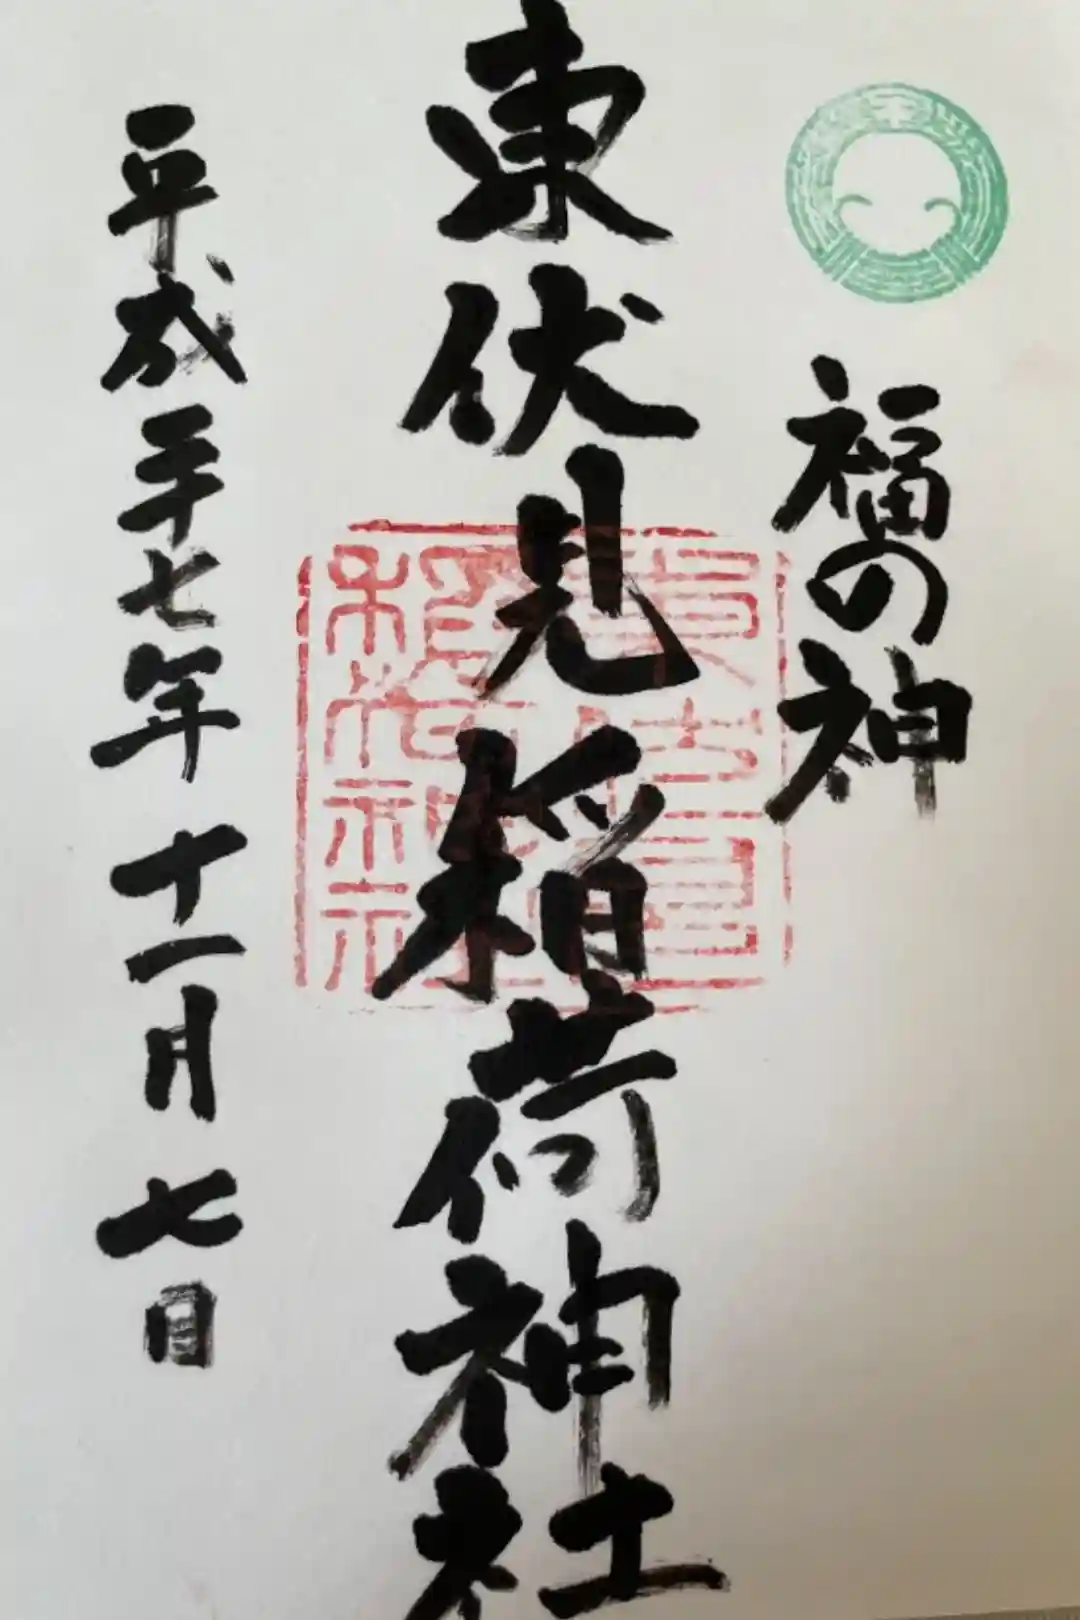 福の神
東伏見稲荷神社
平成二十七年十一月七日